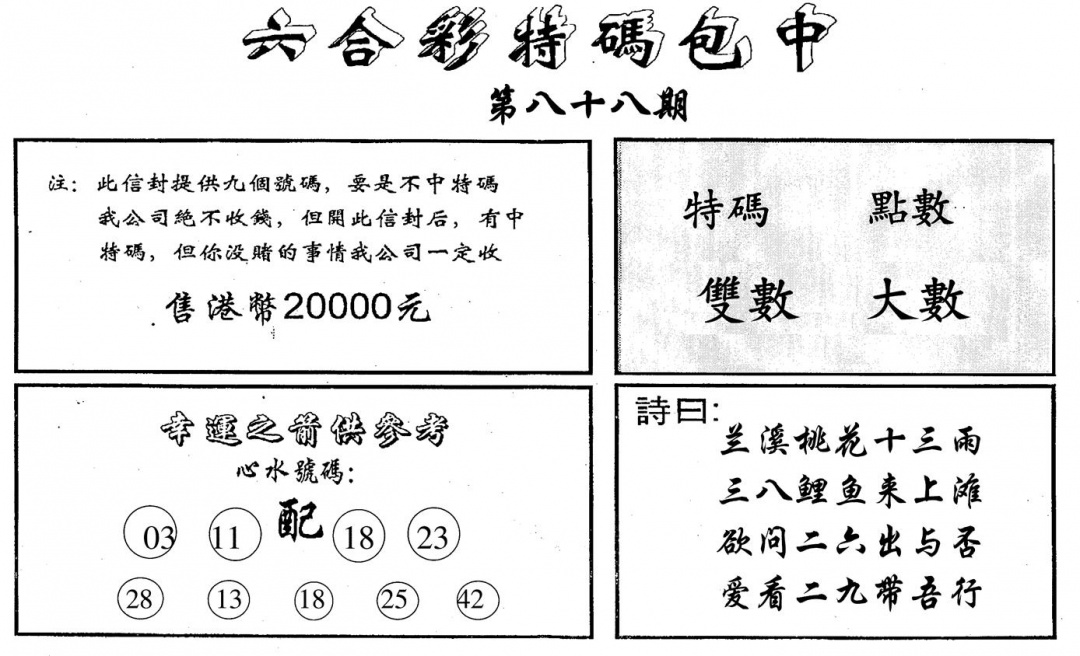 六合彩特碼包中
第八十八期
注：此信封提供九個號碼，要是不中特碼
我公司絕不收錢，但開此信封后，有中
特碼，但你没賭的事情我公司一定收
售港幣20000元
特碼 點數
雙數 大數
幸運之箭供參考
心水號碼：
配
03 11 18 23
28 13 18 25 42
詩曰：
兰溪桃花十三雨
三八鲤鱼来上滩
欲问二六出与否
爱看二九带吾行